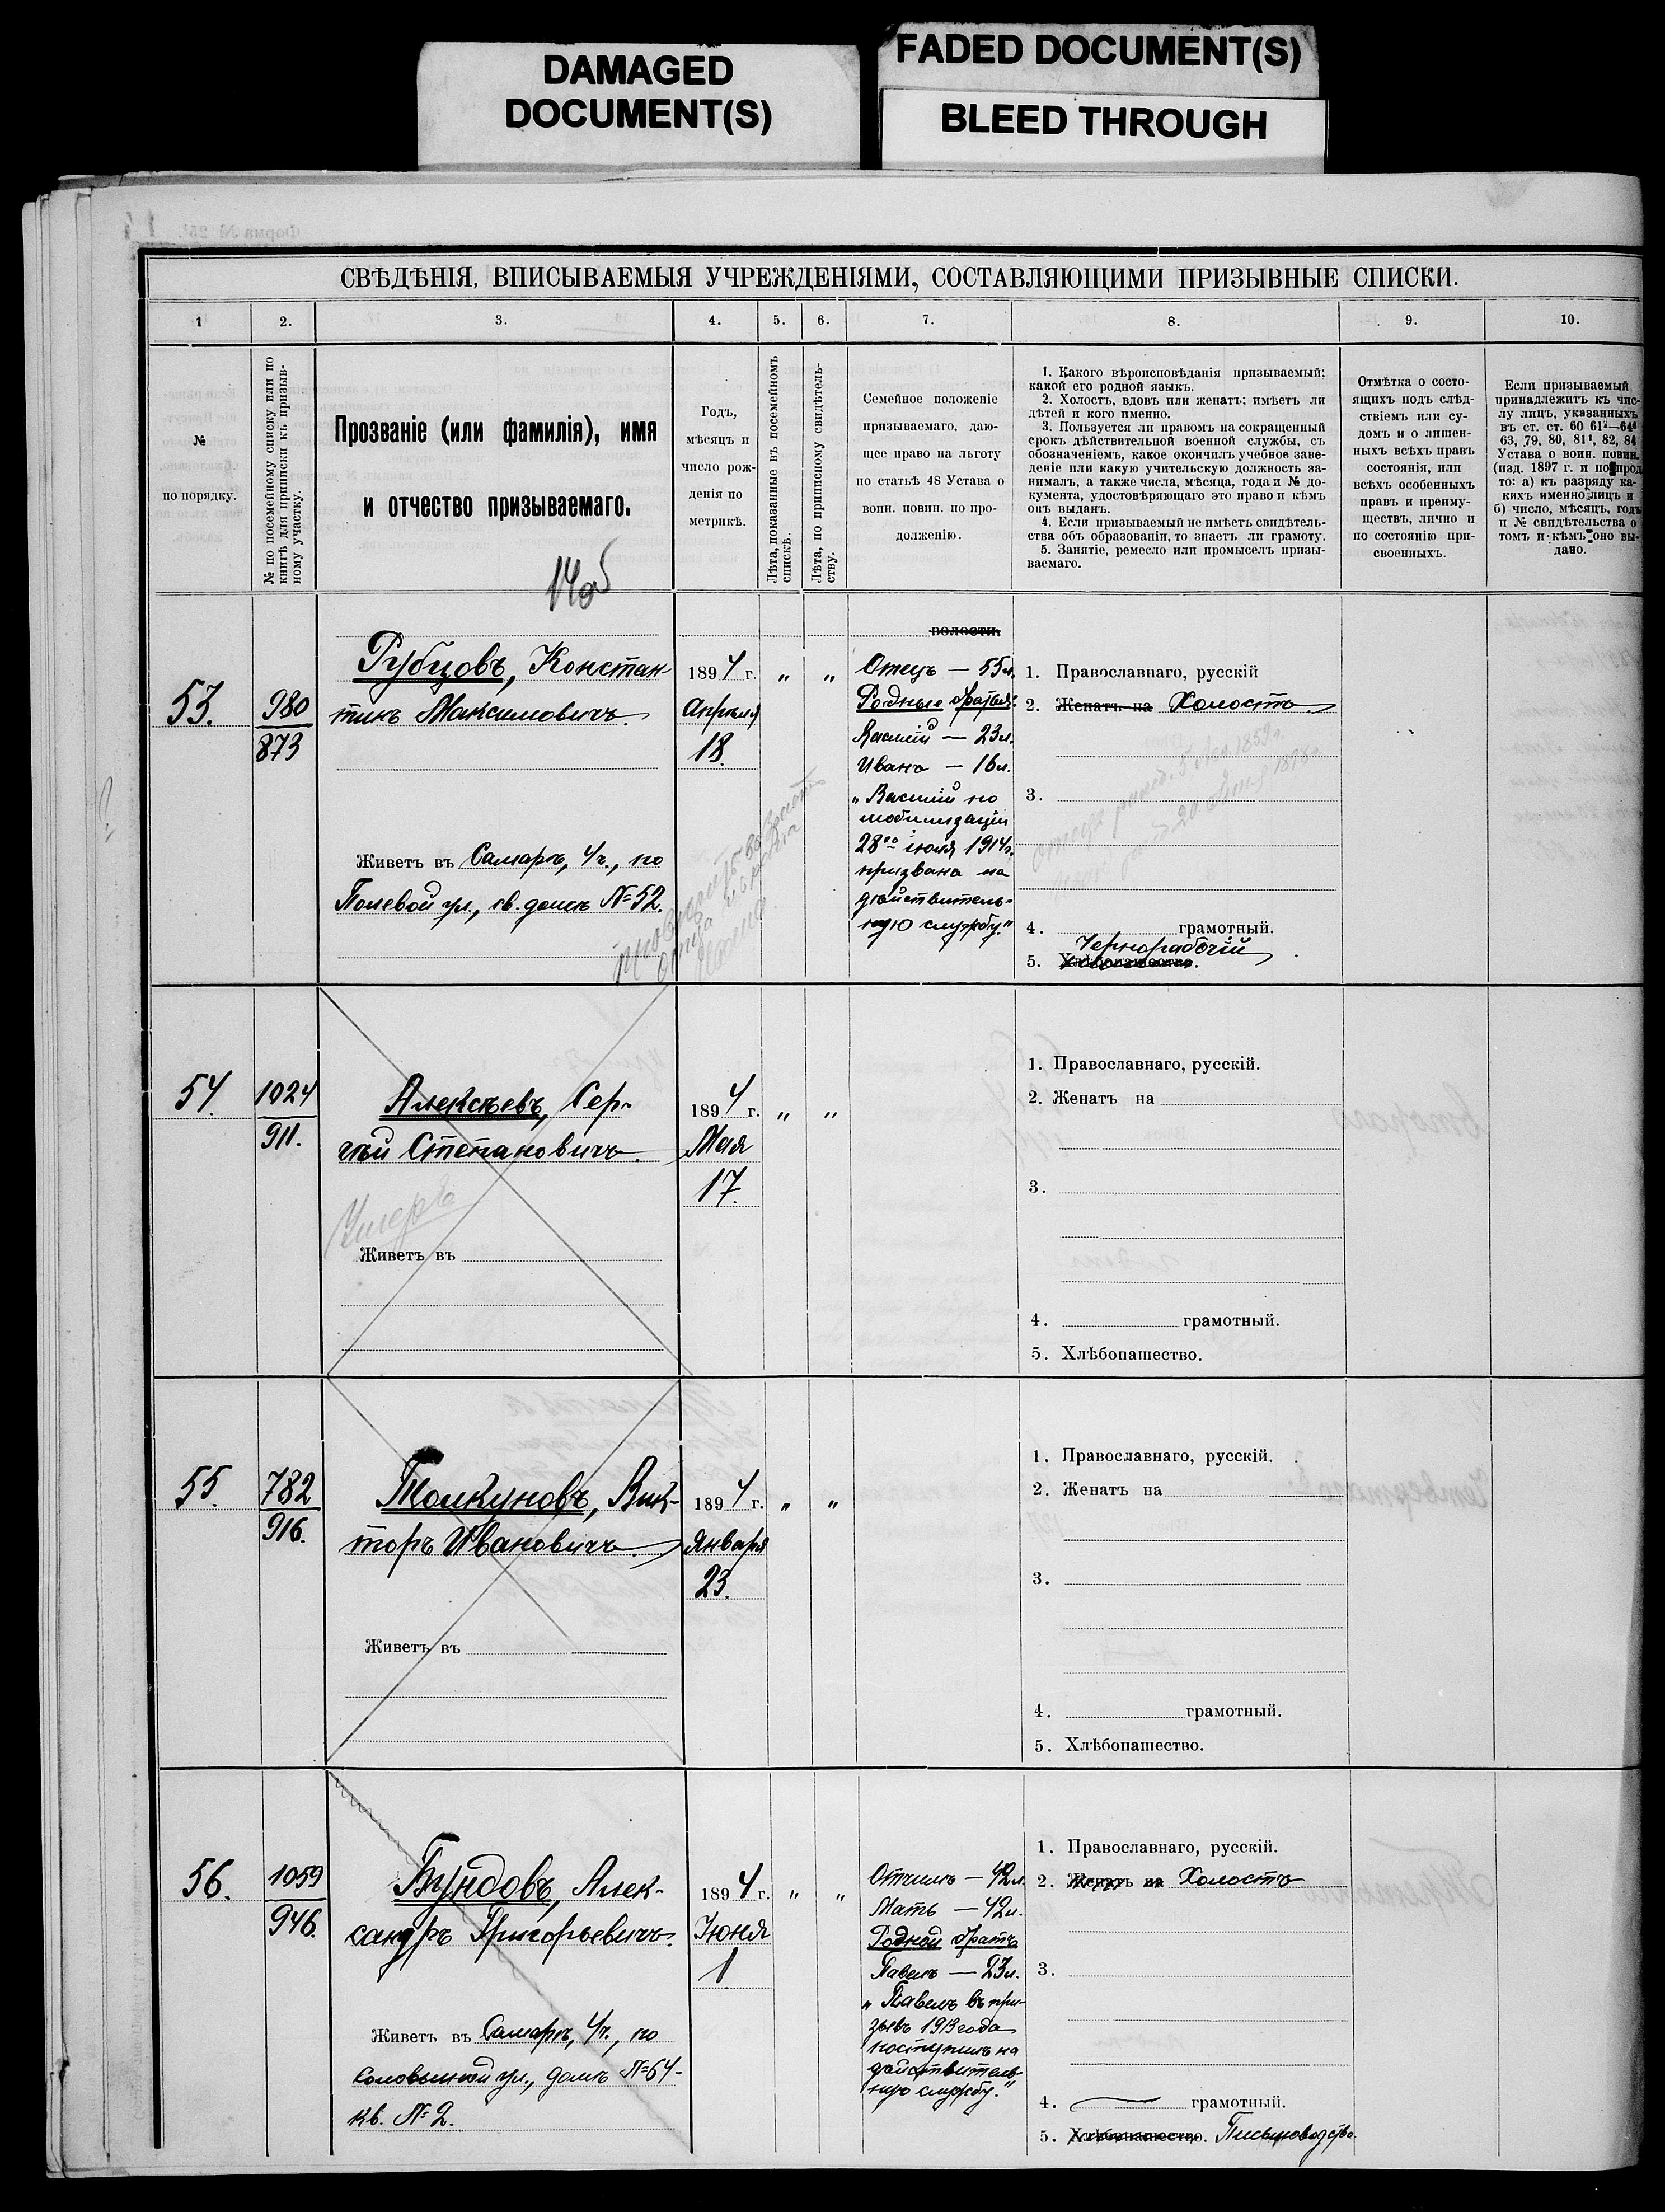 DAMAGED
DOCUMENT(S)
FADED DOCUMENT(S)
BLEED THROUGH
СВѢДѢНІЯ, ВПИСЫВАЕМЫЯ УЧРЕЖДЕНІЯМИ, СОСТАВЛЯЮЩИМИ ПРИЗЫВНЫЕ СПИСКИ.
1
2.
3.
4.
5.
6.
7.
8.
9.
10.
№
по порядку.
№ по посемейному списку или по
книгѣ для приписки къ призыв-
ному участку.
Прозваніе (или фамилія), имя
и отчество призываемаго.
Годъ,
мѣсяцъ и
число рож-
денія по
метрикѣ.
Лѣта, показанные въ посемейномъ
спискѣ.
Лѣта, по приписному свидѣтель-
ству.
Семейное положеніе
призываемаго, даю-
щее право на льготу
по статьѣ 48 Устава о
воин. повин. по про-
долженію.
1. Какого вѣроисповѣданія призываемый;
какой его родной языкъ.
2. Холостъ, вдовъ или женатъ; имѣетъ ли
дѣтей и кого именно.
3. Пользуется ли правомъ на сокращенный
срокъ дѣйствительной военной службы, съ
обозначеніемъ, какое окончилъ учебное заве-
деніе или какую учительскую должность за-
нималъ, а также числа, мѣсяца, года и № до-
кумента, удостовѣряющаго это право и кѣмъ
онъ выданъ.
4. Если призываемый не имѣетъ свидѣтель-
ства объ образованіи, то знаетъ ли грамоту.
5. Занятіе, ремесло или промыселъ призы-
ваемаго.
Отмѣтка о состо-
ящихъ подъ слѣд-
ствіемъ или су-
домъ и о лишен-
ныхъ всѣхъ правъ
состоянія, или
всѣхъ особенныхъ
правъ и преиму-
ществъ, лично и
по состоянію при-
своенныхъ.
Если призываемый
принадлежитъ къ чис-
лу лицъ, указанныхъ
въ ст. ст. 60 61¹—64⁴
63, 79, 80, 81¹, 82, 84
Устава о воин. повин.
(изд. 1897 г. и по прод.
то: а) къ разряду ка-
кихъ именно лицъ и
б) число, мѣсяцъ, годъ
и № свидѣтельства о
томъ и кѣмъ оно вы-
дано.
53.
980
873
Рубцовъ, Констан-
тинъ Максимовичъ
Живетъ въ Самарѣ, 4 ч., по
Полевой ул., св. домъ № 52.
1894 г.
Апрѣля
18.
" "
волости.
Отецъ — 55 л.
Родные братья:
Василій — 23 л.
Иванъ — 16 л.
"Василій по
мобилизаціи
28го іюля 1914 г.
призванъ на
дѣйствитель-
ную службу."
1. Православнаго, русскій
2. Женатъ на Холостъ
3.
4. грамотный.
Чернорабочій
5. Хлѣбопашество.
54.
1024
911.
Алексѣевъ, Сер-
гѣй Степановичъ
Умеръ
Живетъ въ
1894 г.
Мая
17.
" "
1. Православнаго, русскій.
2. Женатъ на
3.
4. грамотный.
5. Хлѣбопашество.
55.
782
916.
Толкуновъ, Вик-
торъ Ивановичъ
Живетъ въ
1894 г.
Января
23.
" "
1. Православнаго, русскій.
2. Женатъ на
3.
4. грамотный.
5. Хлѣбопашество.
56.
1059
946.
Бундовъ, Алек-
сандръ Григорьевичъ.
Живетъ въ Самарѣ, 4 ч., по
ул., домъ № 64-
кв. № 2.
1894 г.
Іюня
1
" "
Отчимъ — 42 л.
Мать — 42 л.
Родной братъ
Павелъ — 23 л.
"Павелъ въ при-
зывъ 1913 года
поступилъ на
дѣйствитель-
ную службу."
1. Православнаго, русскій.
2. Женатъ на Холостъ
3.
4. грамотный.
5. Хлѣбопашество. Письмоводство.